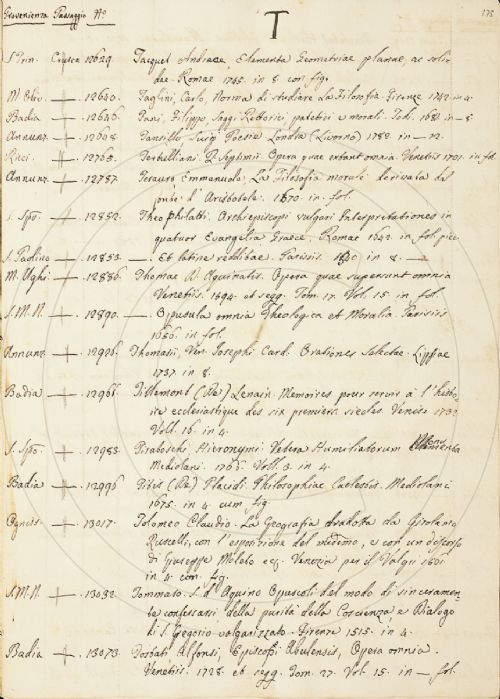 Provenienza Passaggio N.o
T
173
S. Prin. Crusca 12629. Tacquet Andreae, Elementa Geometriae planae, ac soli-
dae. Romae 1745. in 8. con fig.
M. Oliv. 12640. Taglini, Carlo, Norma di studiare La Filosofia. Firenze 1742. in 4.
Badia 12646. Filippo, Saggi Rettorici patetici e morali. Tod. 1681. in 8
Annunz. 12648. Tansillo Luigi Poesie Londra (Livorno) 1782. in 12.
Ricci. 12765. Tertulliani. Q. Septimii Opera quae extant omnia. Venetiis 1701. in fol.
Annunz. 12787. Tesauro Emmanuele, La Filosofia morale derivata dal
fonte d' Aristotele. 1670. in fol.
S. Spo. 12852. Theophilatti. Archiepiscopi vulgari Interpretationes in
quatuor Evangelia Graece. Romae 1542. in fol. pic.
S. Paolino 12853. Et latine redditae. Parisiis. in 8.
M. Ughi 12886. Thomae d' Aquinatis. Opera quae supersunt omnia
Venetiis. 1594. et segg. Tom. 17. Vol. 15 in fol.
S. M. N. 12890. Opuscula omnia Theologica et Moralia. Parisiis
1656. in fol.
Annunz. 12926. Thomasii, Ven. Josephi Card. Orationes Selectae. Lipsiae
1737. in 8.
Badia 12966. Tillemont (De) Lenain. Memoires pour servir a l' histo-
ire ecclesiastique des six premiers siecles. Venise 1732
Voll. 16. in 4.
S. Spo. 12983. Tiraboschi, Hieronymi. Vetera Humiliatorum Monumenta
Mediolani. 1766. Voll. 3. in 4.
Badia 12996 Titis (De) Placidi. Philosophiae Caelestis. Mediolani
1675. in 4. cum fig.
Ogniss. 13017. Tolomeo Claudio. La Geografia tradotta da Girolamo
Ruscelli, con l' esposizione del medemo, e con un discorso
di Giuseppe Moleto ecc. Venezia per il Valgri 1561
in 4. con fig.
S. M. N. 13032. Tommaso. S. d' Aquino Opuscoli del modo di sinceramen-
te confessarsi della purità della Coscienza e Dialogo
di S. Gregorio volgarizzato. Firenze 1515. in 4.
Badia 13073. Tostati Alfonsi, Episcopi Abulensis, Opera omnia.
Venetiis. 1728. et segg. Tom. 27. Vol. 15. in fol.